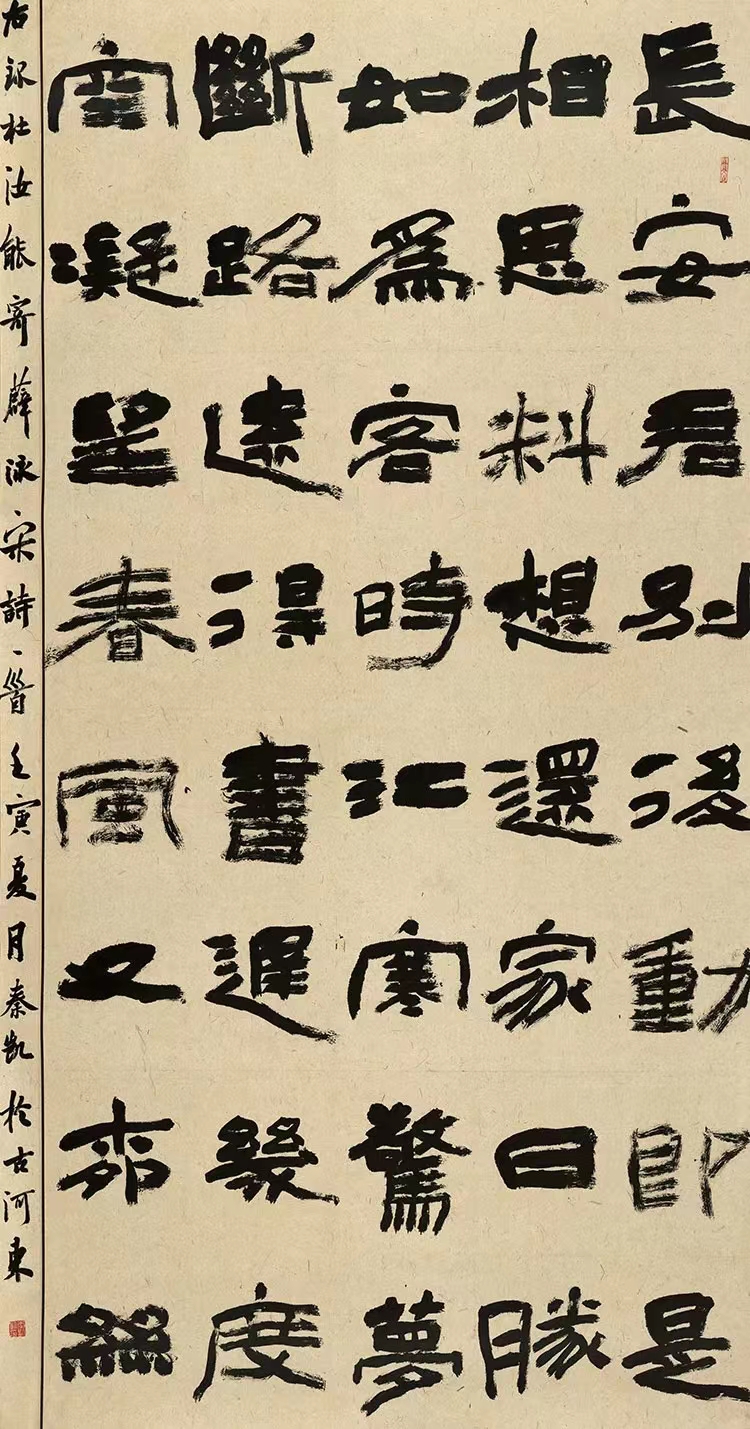 長安君別後動即是
相思料想還家日勝
如爲客時江寒驚夢
斷路遠得書遲幾度
空凝望春風又柳絲
右錄杜汝能寄薛泳宋詩一首壬寅夏月秦凱於古河東